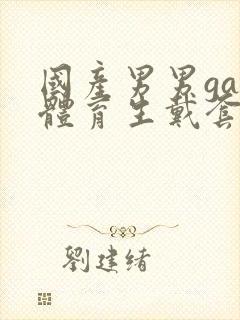 國產男男ga
體育生戴套
劉建緒